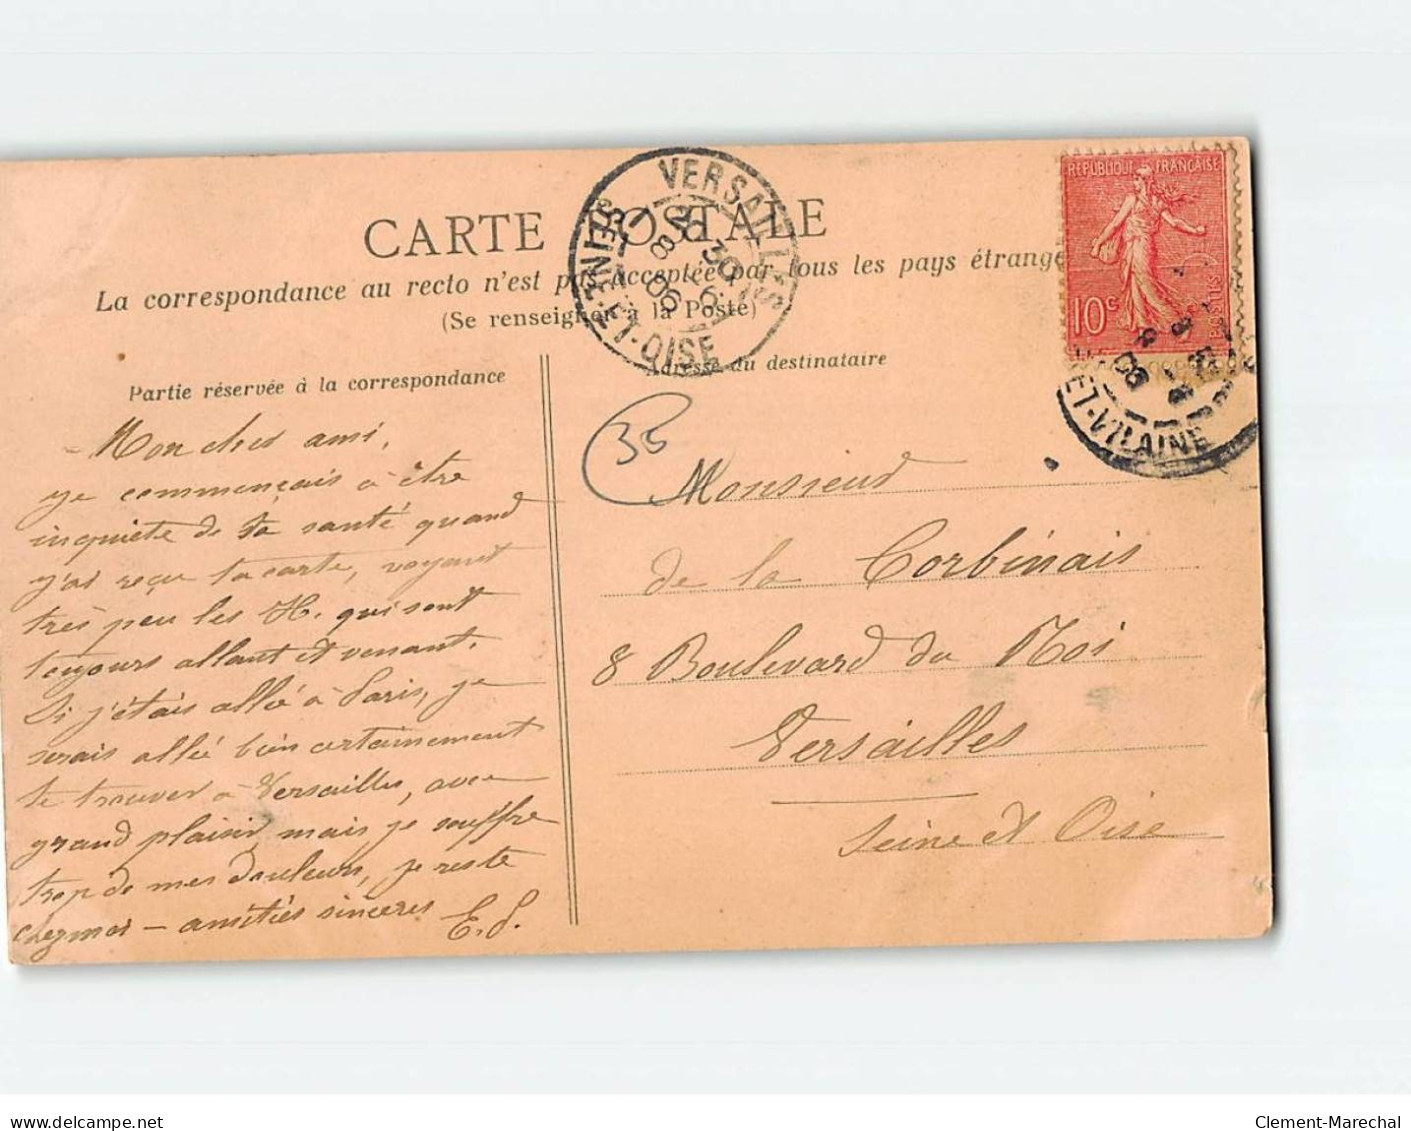 CARTE POSTALE
La correspondance au recto n'est pas acceptée par tous les pays étrange
(Se renseigner à la Poste)
Partie réservée à la correspondance
Adresse du destinataire
REPUBLIQUE FRANÇAISE
10c
POSTES
VERSAILLES
SEINE-ET-OISE
8 -6
06
ET-VILAINE
35
Mon cher ami,
je commençais à être
inquiète de ta santé quand
j'ai reçu ta carte, voyant
très peu les H. qui sont
toujours allant et venant.
Si j'étais allée à Paris, je
serais allée bien certainement
te trouver à Versailles, avec
grand plaisir, mais je souffre
trop de mes douleurs, je reste
chez moi — amitiés sincères
E.S.
Monsieur
de la Corbinais
8 Boulevard du Roi
Versailles
Seine et Oise
www.delcampe.net
Clement-Marechal